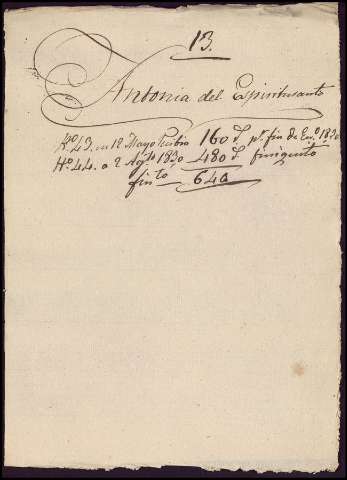 13.
Antonia del Espiritusanto
Nº 43. en 12 Mayo Recibio 160 d. pr. fin de En.º 1830
Nº 44. a 2 Agto 1830 480 d. finiquito
fin to 640